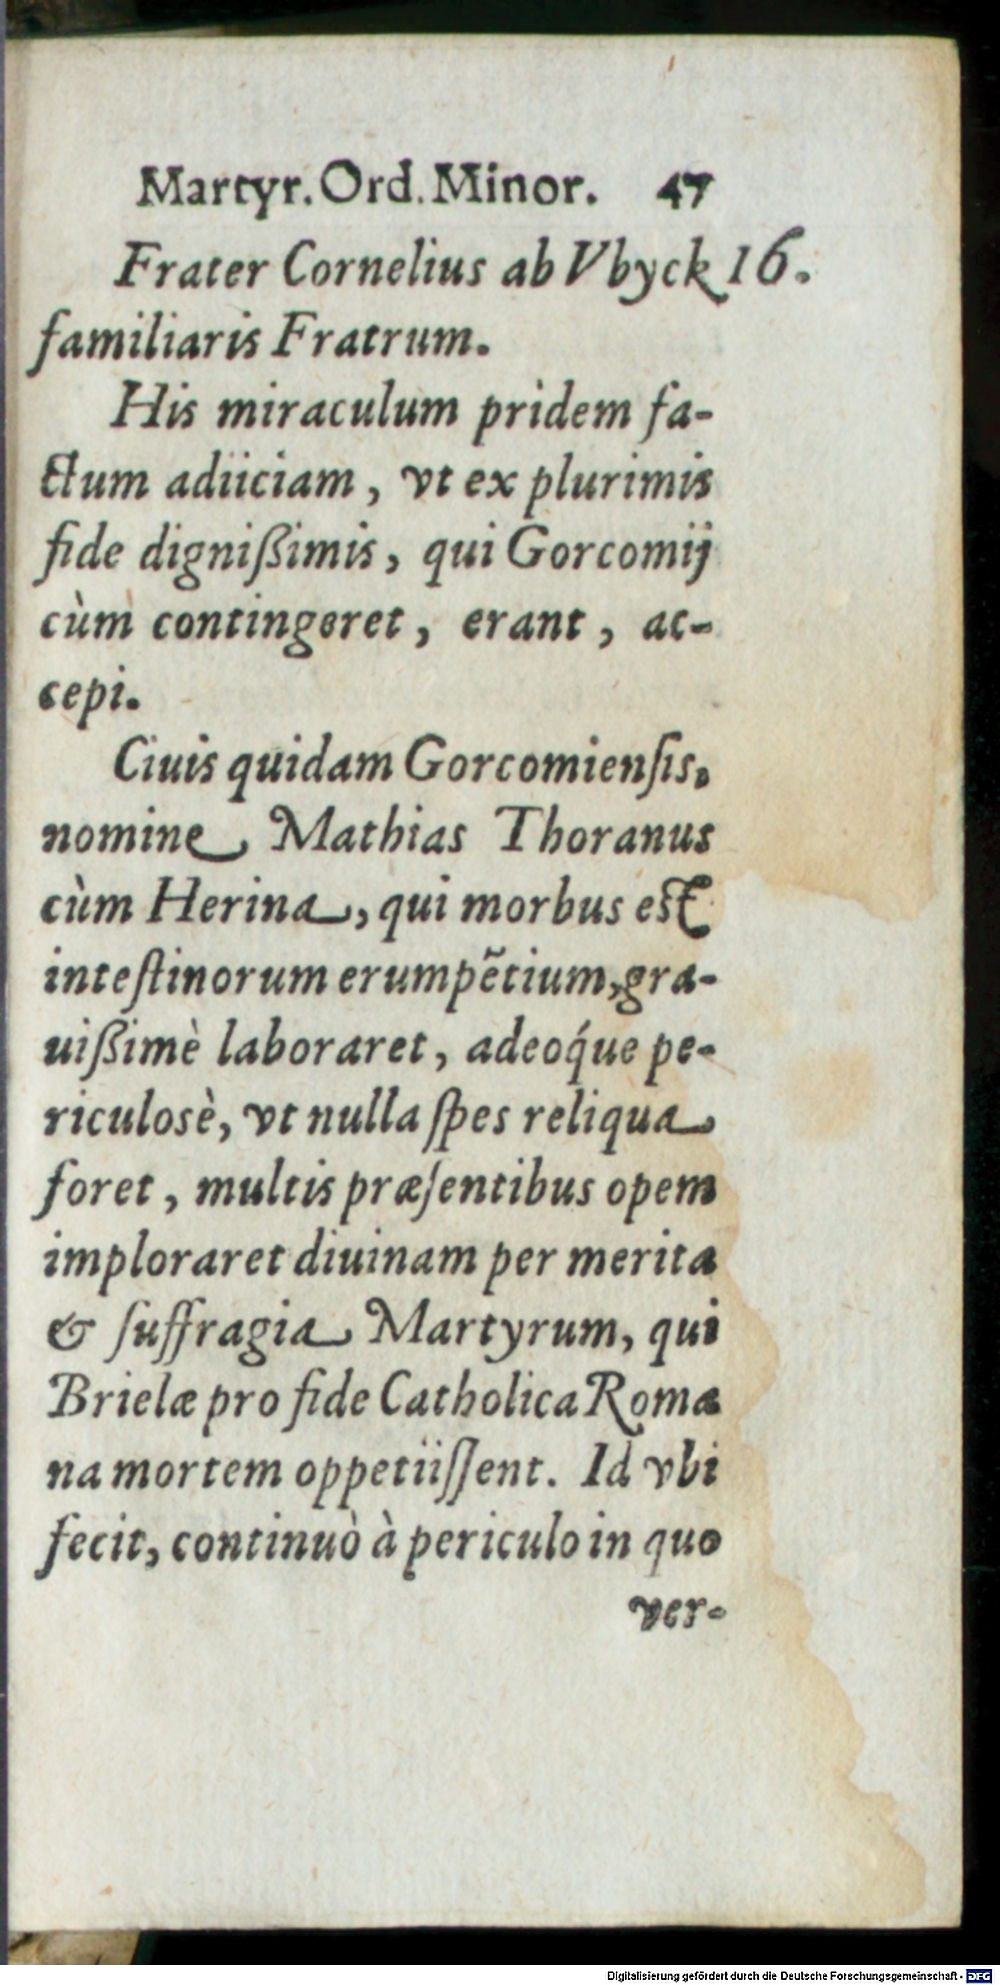 Martyr. Ord. Minor. 47
Frater Cornelius ab Vbyck 16.
familiaris Fratrum.
His miraculum pridem fa-
ctum adiiciam, vt ex plurimis
fide dignißimis, qui Gorcomij
cùm contingeret, erant, ac-
cepi.
Ciuis quidam Gorcomienſis,
nomine Mathias Thoranus
cùm Herina, qui morbus est
inteſtinorum erumpẽtium, gra-
uißimè laboraret, adeoq́ue pe-
riculosè, vt nulla ſpes reliqua
foret, multis præſentibus opem
imploraret diuinam per merita
& ſuffragia Martyrum, qui
Brielæ pro fide Catholica Roma
na mortem oppetiiſſent. Id vbi
fecit, continuò à periculo in quo
ver-
Digitalisierung gefördert durch die Deutsche Forschungsgemeinschaft - DFG